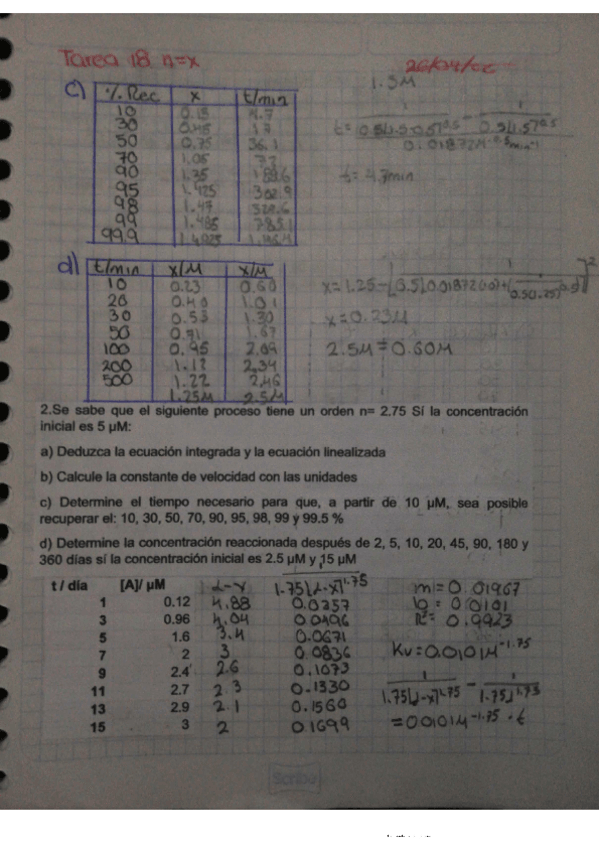 Tarea 18 n=x
26/04/
1.5M
c) %. Rec x t/min
10 0.15 4.7
30 0.45 17
50 0.75 36.1
70 1.05 72
90 1.35 188.6
95 1.425 302.9
98 1.47 528.6
99 1.485 785.1
99.9 1.4985
t=
0.01872M
t= 4.7min
d) t/min x/M x/M
10 0.23 0.60
20 0.40 1.01
30 0.53 1.30
50 0.71 1.67
100 0.95 2.09
200 1.12 2.34
500 1.22 2.46
1.25M 2.5M
x=1.25-
x=0.23M
2.5M=0.60M
2.Se sabe que el siguiente proceso tiene un orden n= 2.75 Sí la concentración
inicial es 5 µM:
a) Deduzca la ecuación integrada y la ecuación linealizada
b) Calcule la constante de velocidad con las unidades
c) Determine el tiempo necesario para que, a partir de 10 µM, sea posible
recuperar el: 10, 30, 50, 70, 90, 95, 98, 99 y 99.5 %
d) Determine la concentración reaccionada después de 2, 5, 10, 20, 45, 90, 180 y
360 días sí la concentración inicial es 2.5 µM y 15 µM
t / día [A]/ µM 1.75(α-x)^1.75
1 0.12 4.88 0.0357
3 0.96 4.04 0.0496
5 1.6 3.4 0.0671
7 2 3 0.0836
9 2.4 2.6 0.1073
11 2.7 2.3 0.1330
13 2.9 2.1 0.1560
15 3 2 0.1699
m=0.01967
b=0.0101
R²=0.9923
Kv=0.0101M^-1.75
1/1.75(α-x)^1.75 - 1/1.75α^1.75
=0.0101M^-1.75 · t
Scribe